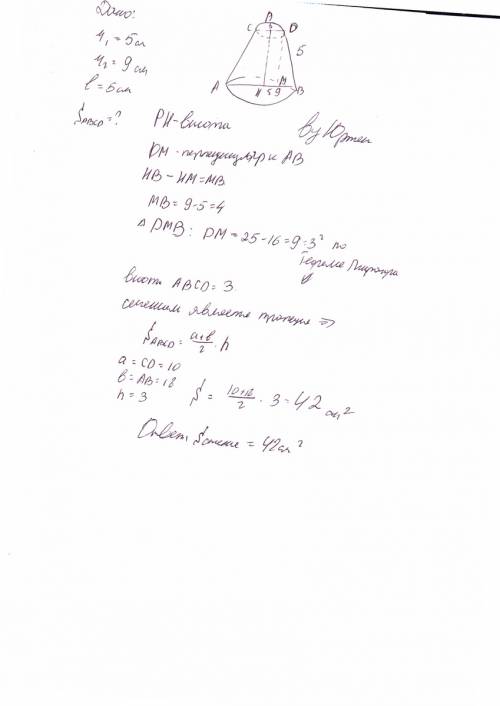 Дано:
r₁ = 5см
r₂ = 9 см
l = 5см
S ABCD = ?
P
C
D
5
A
M
H 5 9 B
PH - высота
by Юрген
DM - перпендикуляр к AB
HB - HM = MB
MB = 9-5=4
△ DMB: DM = 25-16=9=3² по
Теореме Пифагора
высота ABCD = 3
сечением является трапеция ⇒
S ABCD = a+b/2 · h
a = CD = 10
b = AB = 18
h = 3
S = 10+18/2 · 3 = 42 см²
Ответ: S сечения = 42см²